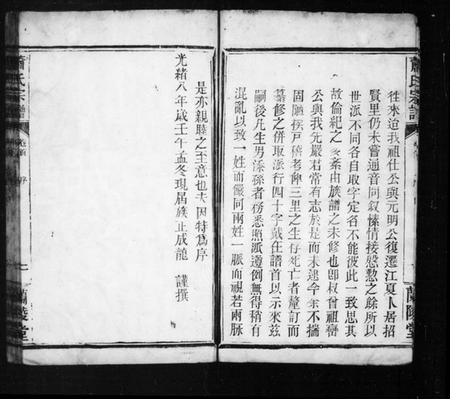 蕭氏宗譜
蘭陵堂
往來迨我祖仕公與元明公復遷江夏人居招
賢里仍未嘗通音問敘悃情接慇懃之餘所以
世派不同各自取字定名不能彼此一致思其
故倫紀之紊由族譜之未修也卽叔曾祖
公與我先嚴君常有志於是而未逮今余不揣
固陋挨戶稽考伸三里之生存死亡者釐訂而
纂修之併取派行四十字載在譜首以示來茲
嗣後凡生男添孫者務悉照派遵例無得稍有
混亂以致一姓而儼同兩姓一脈而視若兩脈
是亦親睦之至意也夫因特爲序
光緒八年歲壬午孟冬現屆族正成龍 謹撰
蕭氏宗譜
序
蘭陵堂